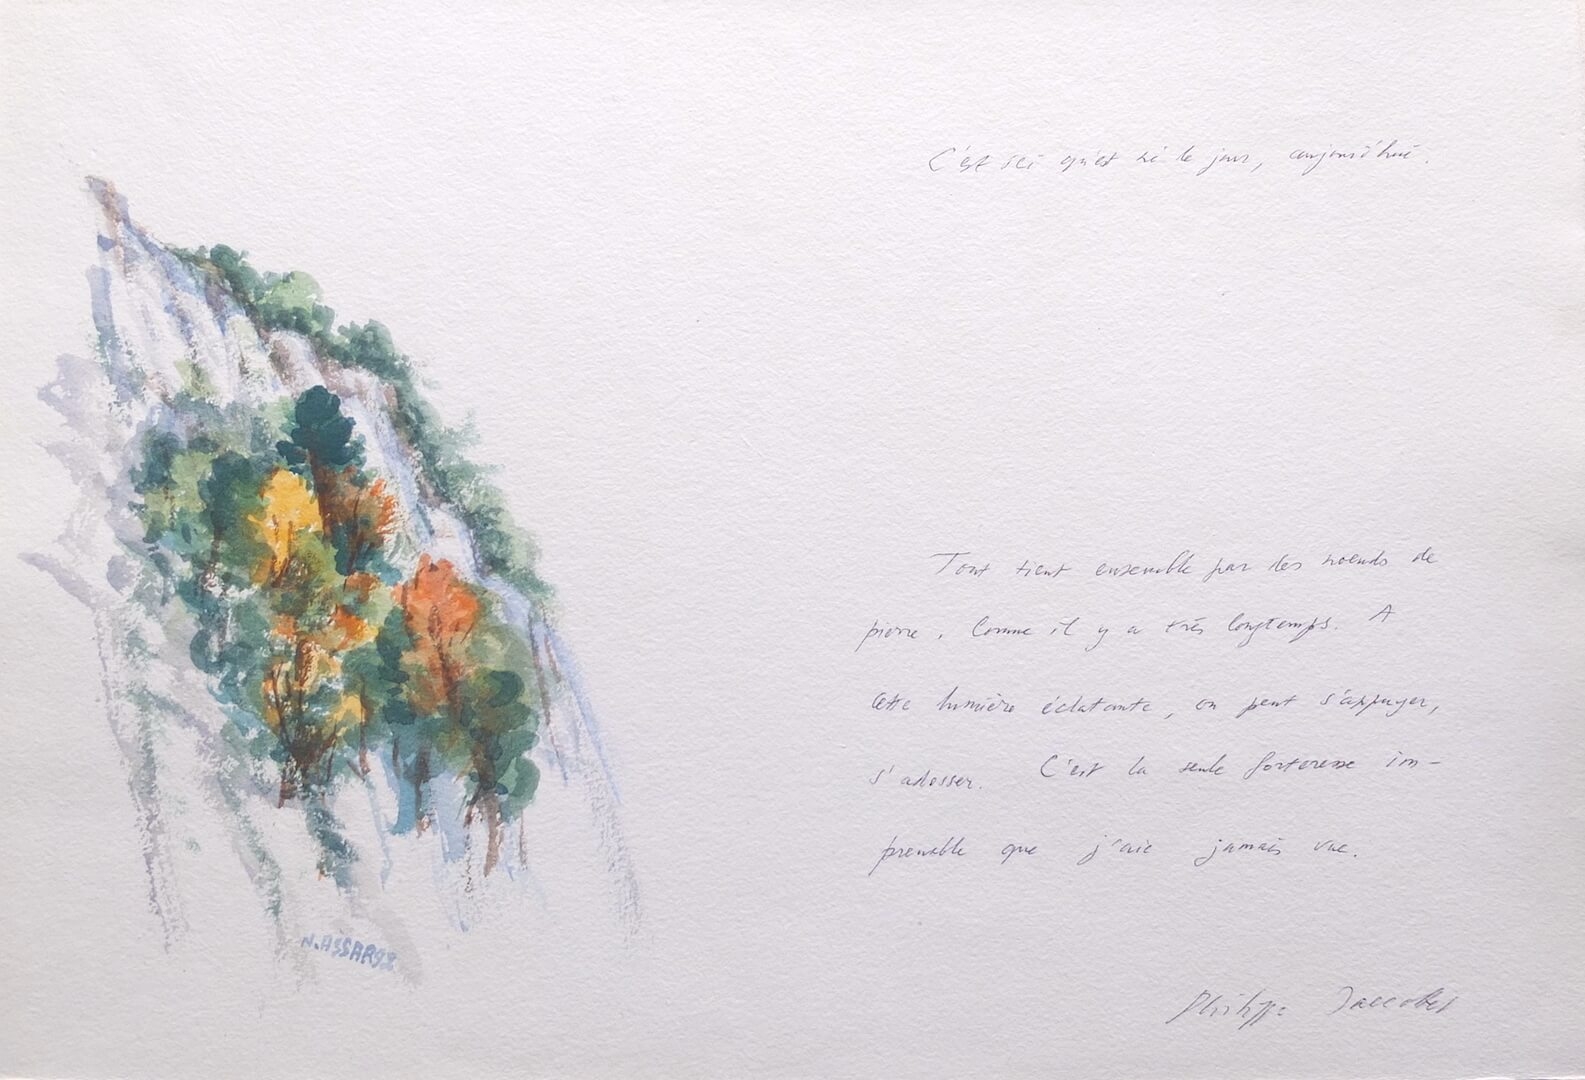 C'est ici qu'est né le jour, aujourd'hui.
Tout tient ensemble par des noeuds de
pierre. Comme il y a très longtemps. A
cette lumière éclatante, on peut s'appuyer,
s'adosser. C'est la seule forteresse im-
prenable que j'aie jamais vue.
Philippe Jaccottet
N. ASSAR 92